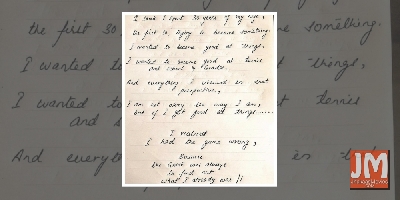 I think I spent 30 years of my life,
the first 30, trying to become something.
I wanted to become good at things,
I wanted to become good at tennis
and
And everything I viewed in that
perspective,
I am not okay the way I am,
but if I got good at things......
I realized
I had the game wrong,
Because
the Game was always
to find out
what I already was !!
the first 30,
me something.
I wanted to
things,
I wanted to
tennis
and
And everyth
JM